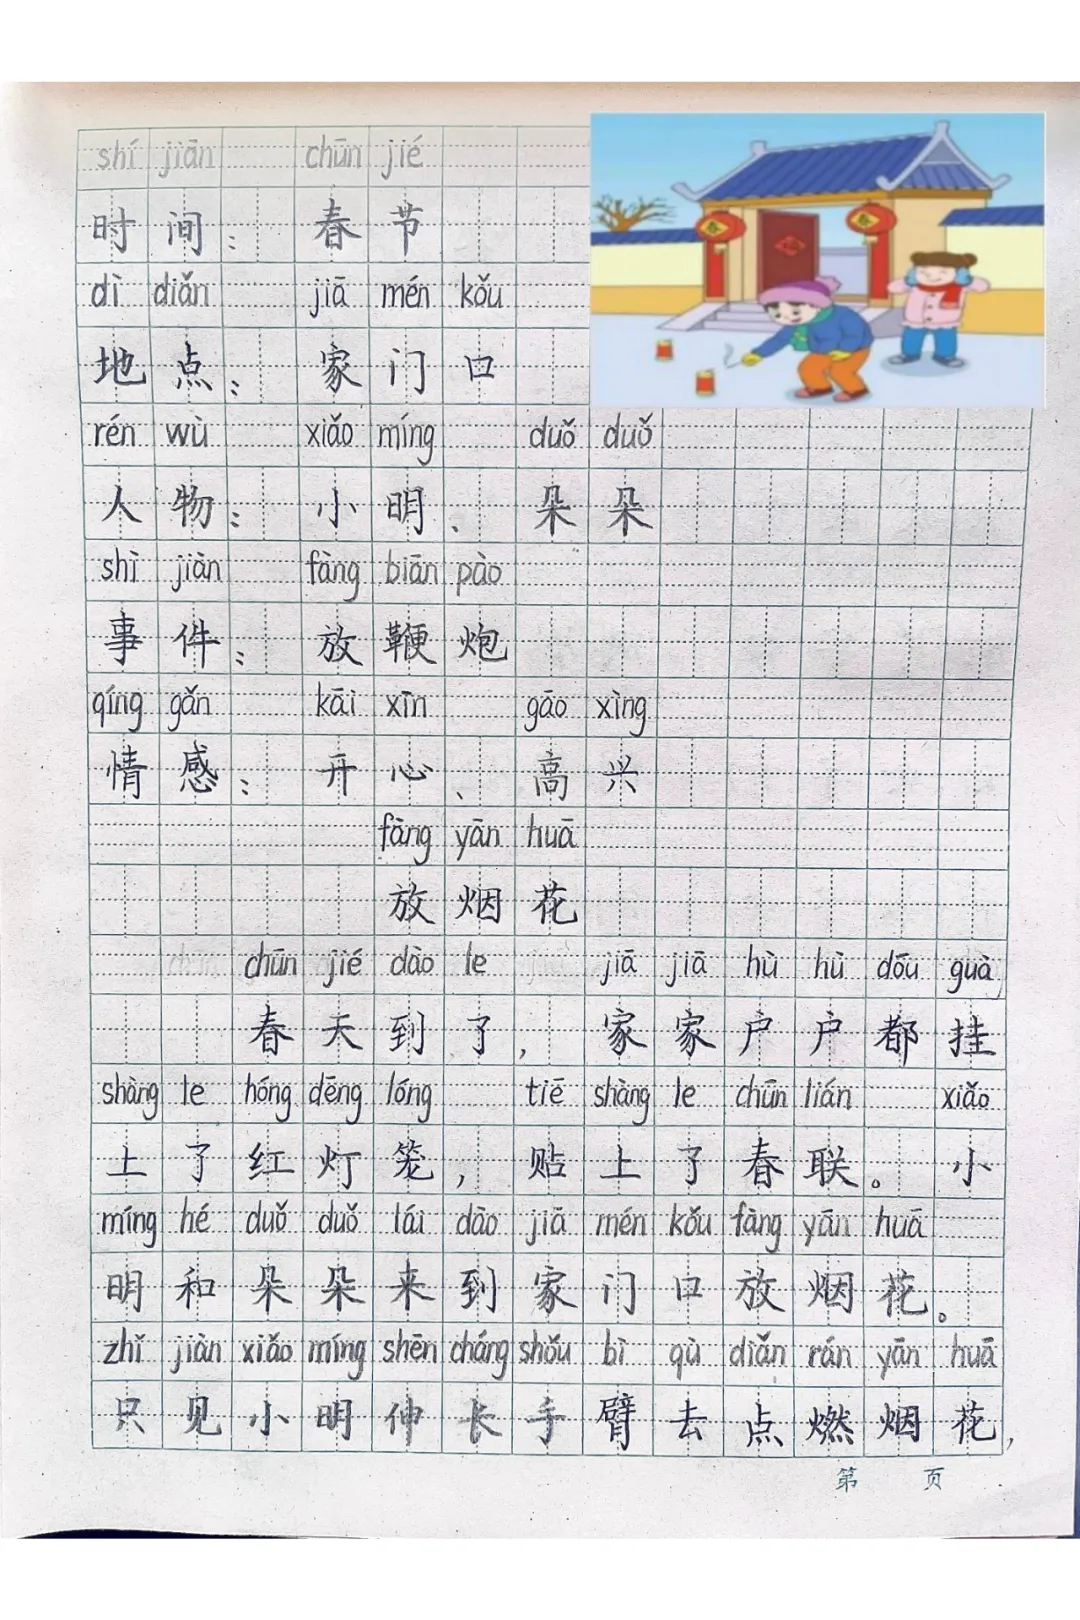 shí jiān chūn jié
时间：春节
dì diǎn jiā mén kǒu
地点：家门口
rén wù xiǎo míng duǒ duǒ
人物：小明、朵朵
shì jiàn fàng biān pào
事件：放鞭炮
qíng gǎn kāi xīn gāo xìng
情感：开心、高兴
fàng yān huā
放烟花
chūn jié dào le jiā jiā hù hù dōu guà
春天到了，家家户户都挂
shàng le hóng dēng lóng tiē shàng le chūn lián xiǎo
上了红灯笼，贴上了春联。小
míng hé duǒ duǒ lái dào jiā mén kǒu fàng yān huā
明和朵朵来到家门口放烟花。
zhǐ jiàn xiǎo míng shēn cháng shǒu bì qù diǎn rán yān huā
只见小明伸长手臂去点燃烟花，
第 页